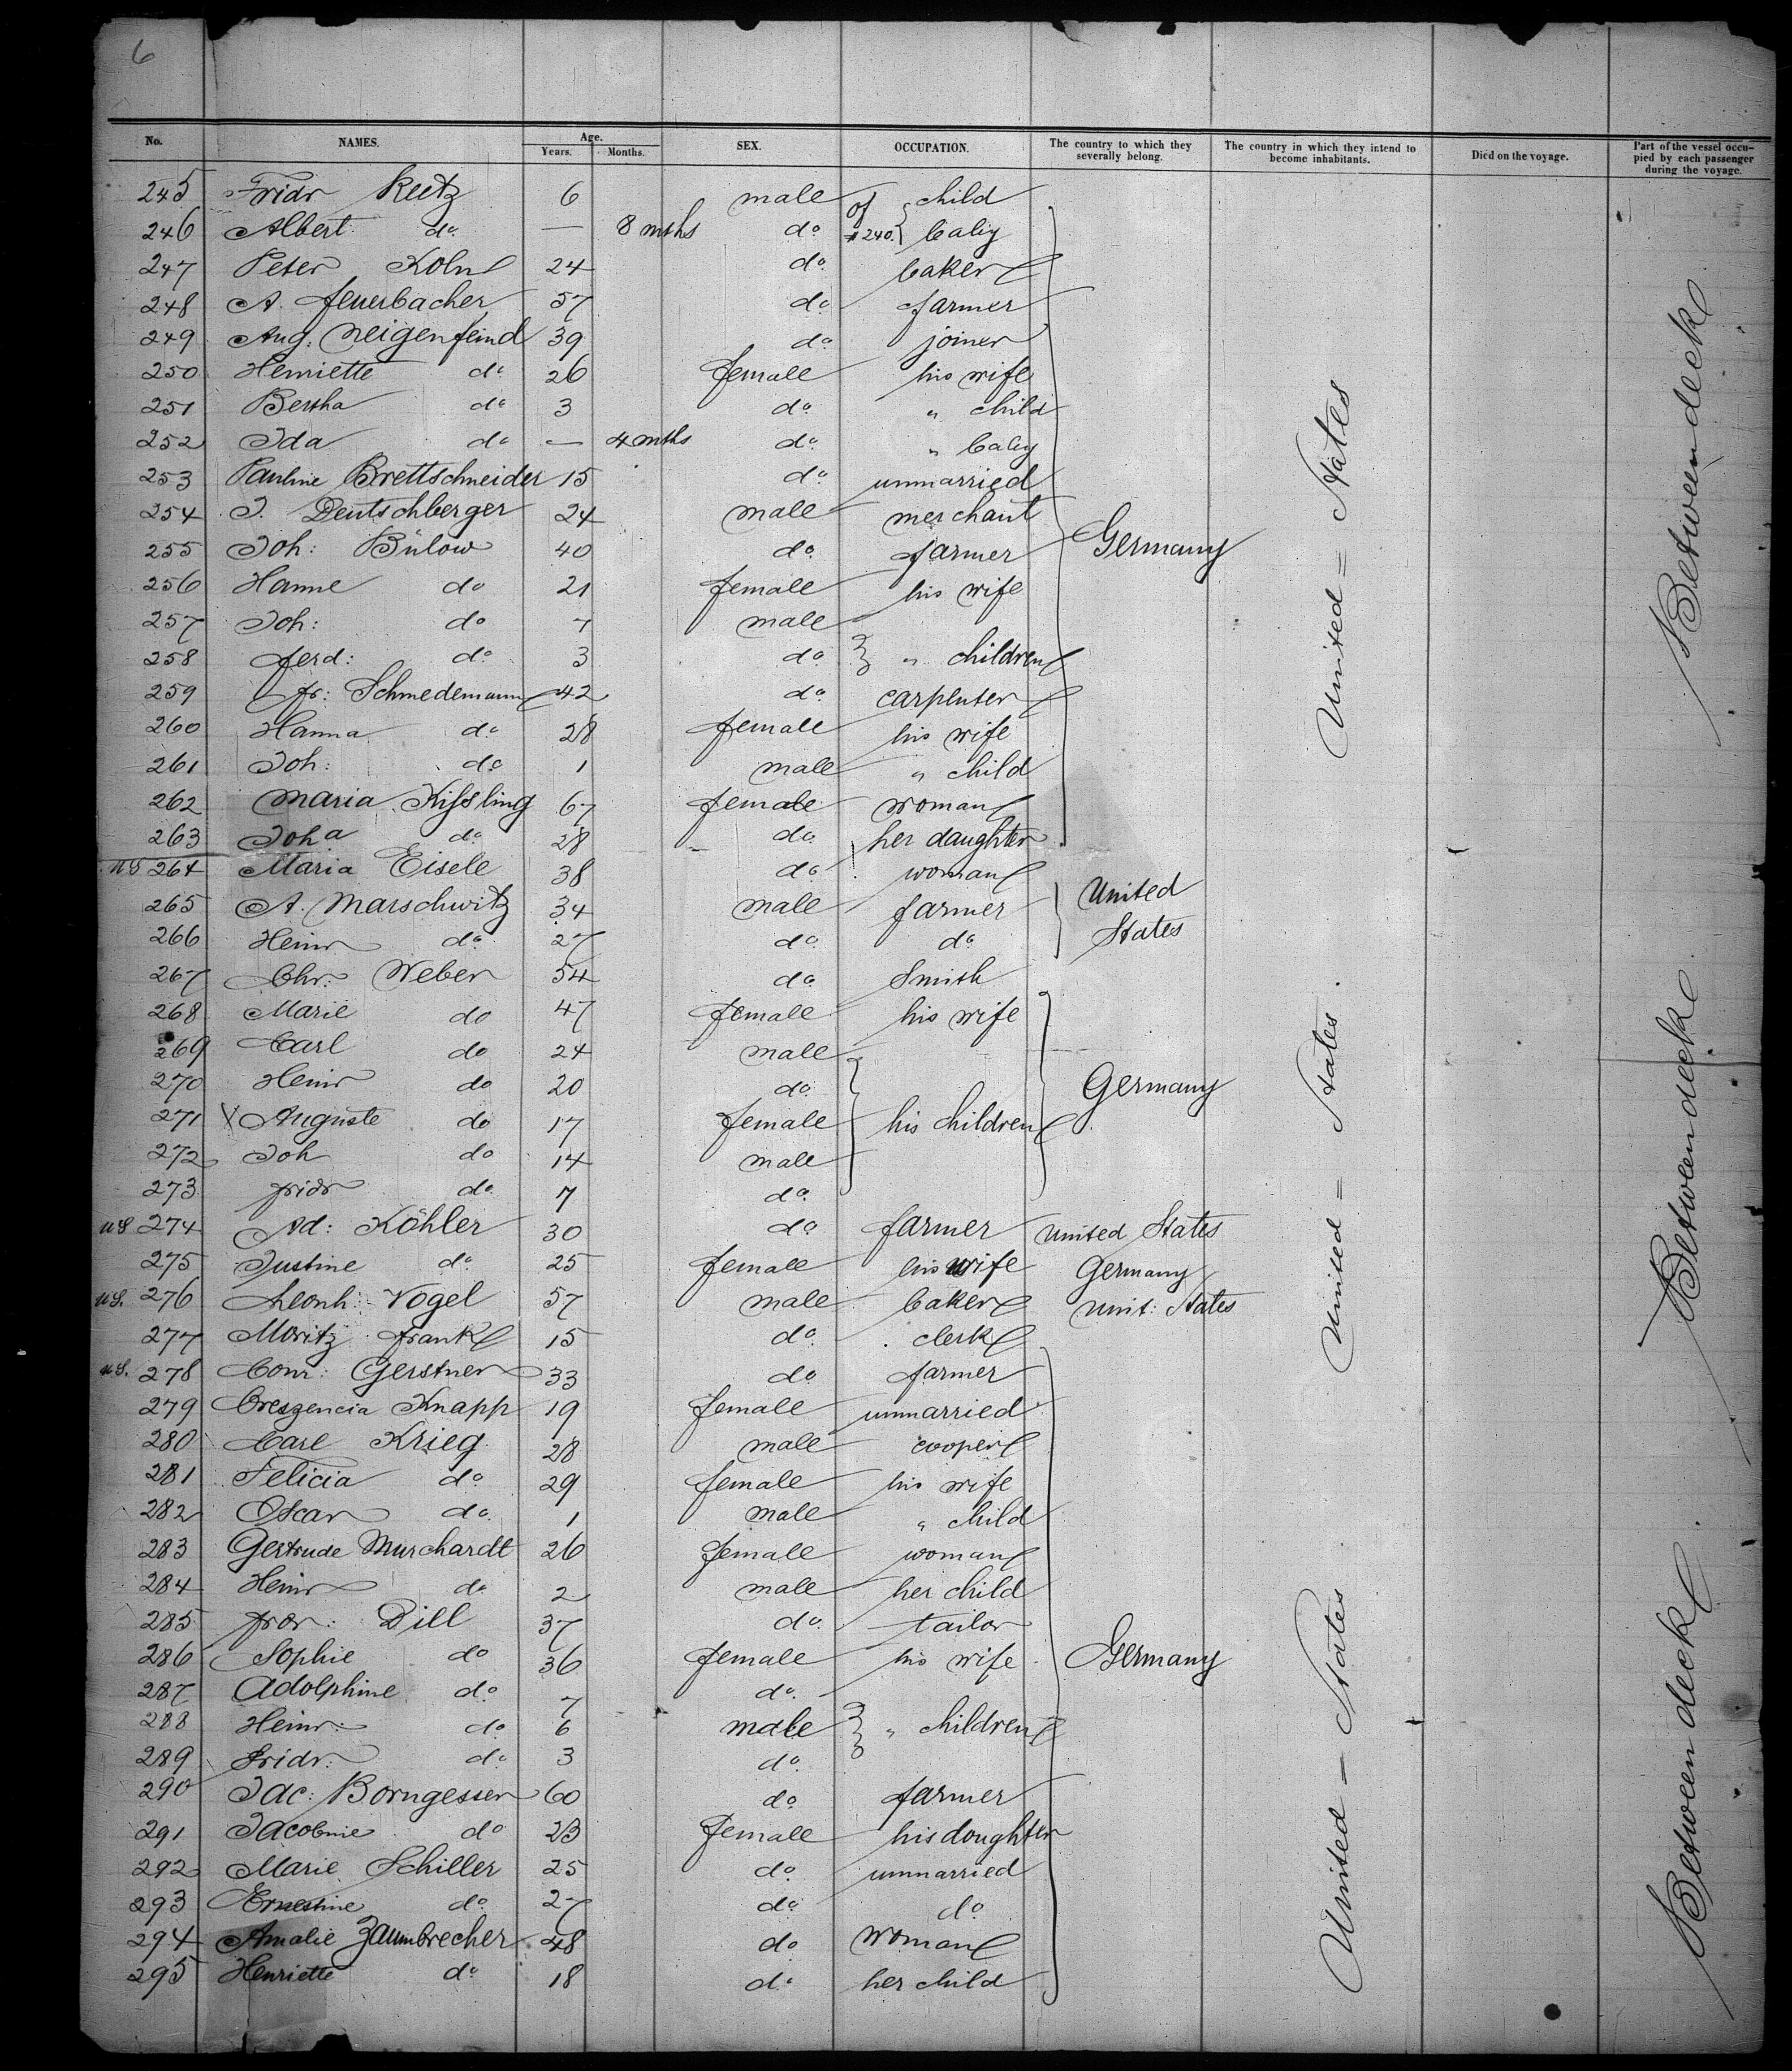 6
No. NAMES. Age. Years. Months. SEX. OCCUPATION. The country to which they severally belong. The country in which they intend to become inhabitants. Died on the voyage. Part of the vessel occupied by each passenger during the voyage.
245 Fridr Reitz 6 male of child
246 Albert do — 8 mths do # 240. baby
247 Peter Kohn 24 do baker
248 A. Feuerbacher 57 do farmer
249 Aug. Neigenfeind 39 do joiner
250 Henriette do 26 female his wife
251 Bertha do 3 do " child
252 Ida do — 4 mths do " baby
253 Pauline Brettschneider 15 do unmarried
254 I. Deutschberger 24 male merchant
255 Joh: Bülow 40 do farmer Germany
256 Hanne do 21 female his wife
257 Joh: do 7 male
258 Ferd: do 3 do " children
259 Fr: Schmedemann 42 do carpenter
260 Hanna do 28 female his wife
261 Joh: do 1 male " child
262 Maria Kissling 67 female woman
263 Joha do 28 do her daughter
US 264 Maria Eisele 38 do woman
265 A. Marschwitz 34 male farmer United
266 Heinr do 27 do do States
267 Chr: Weber 54 do Smith
268 Marie do 47 female his wife
269 Carl do 24 male
270 Heinr do 20 do Germany
271 Auguste do 17 female his children
272 Joh do 14 male
273 Fridr do 7 do
US 274 Ad: Köhler 30 do farmer United States
275 Justine do 25 female his wife Germany
US. 276 Leonh: Vogel 57 male baker Unit: States
277 Moritz Frank 15 do clerk
US. 278 Conr: Gerstner 33 do farmer
279 Creszencia Knapp 19 female unmarried
280 Carl Krieg 28 male cooper
281 Felicia do 29 female his wife
282 Oscar do 1 male " child
283 Gertrude Murchardt 26 female woman
284 Heinr do 2 male her child
285 Frdr: Dill 37 do tailor
286 Sophie do 36 female his wife Germany
287 Adolphine do 7 do
288 Heinr: do 6 male " children
289 Fridr: do 3 do
290 Jac: Borngesser 60 do farmer
291 Jacobine do 23 female his doughter
292 Marie Schiller 25 do unmarried
293 Ernestine do 27 do do
294 Amalie Zaumbrecher 48 do woman
295 Henriette do 18 do her child
United = States
United = States.
United — States
Between deck
Between deck
Between deck